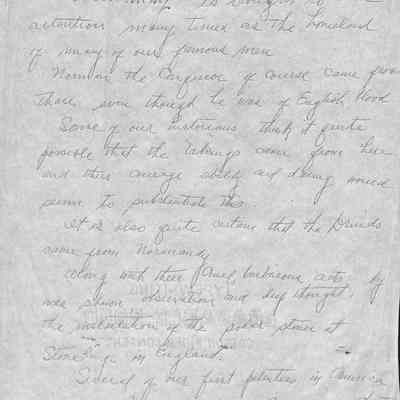 is brought to
attention many times as the homeland
of many of our famous men
Norman the Conqueror of course came from
there even though he was of English blood
Some of our historians think it quite
possible that the came from here
and their courage ability and daring would
seem to substantiate this.
It is also quite certain that the Druids
came from Normandy
along with their cruel barbarous acts by
was shown observation and deep thought,
the installation of the stones at
in England.
Several of our first in America